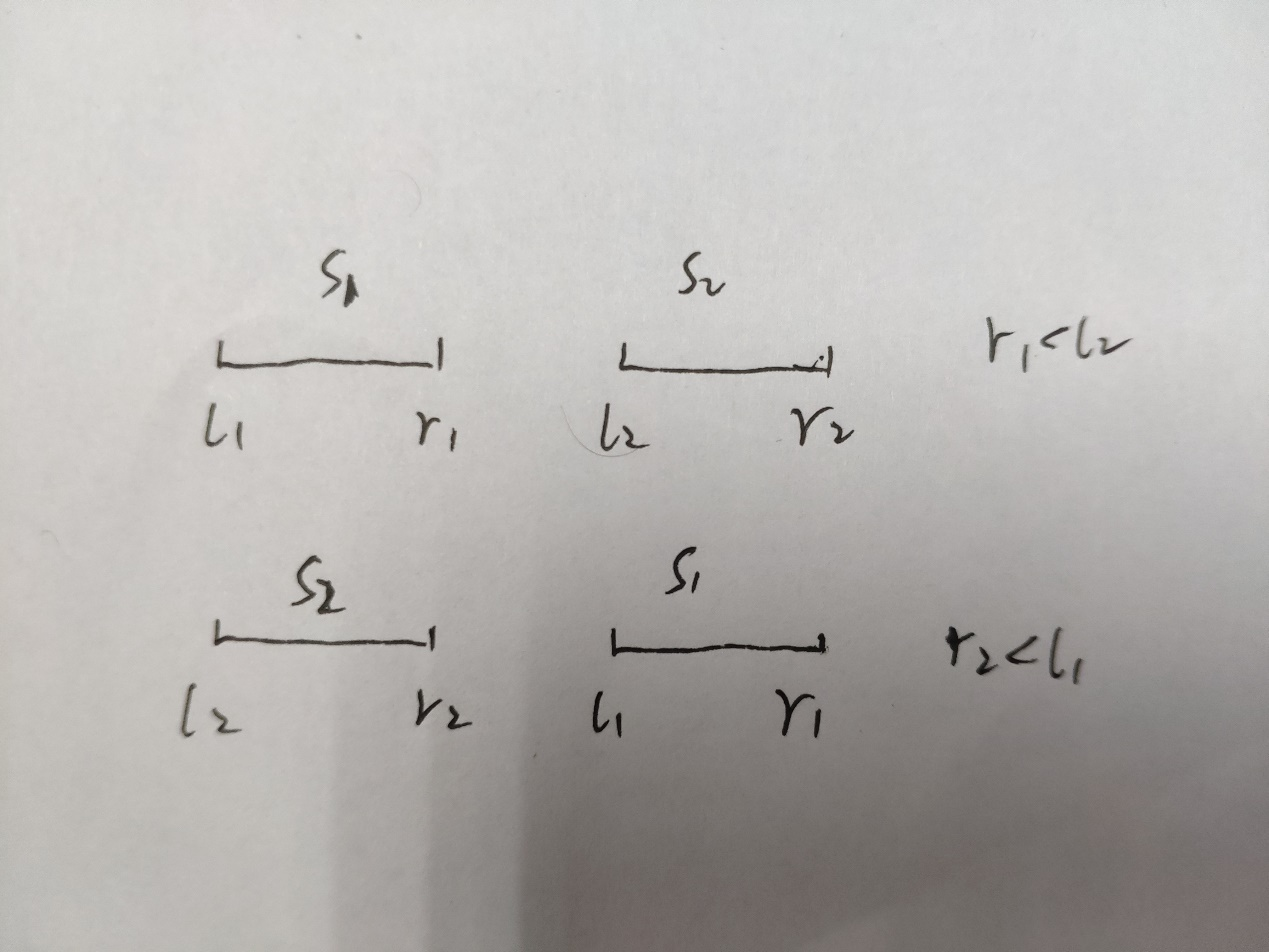 S1 S2
l1 r1 l2 r2 r1<l2
S2 S1
l2 r2 l1 r1 r2<l1